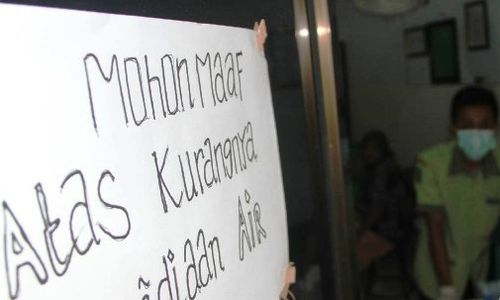 Mohon Maaf
Atas Kurangnya
ediaan Air